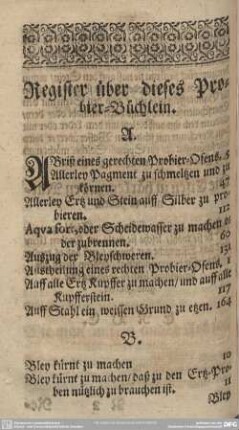 Register über dieses Pro-
bier-Büchlein.
A.
ABriß eines gerechten Probier-Ofens. 5
Allerley Pagment zu schmeltzen und zu
körnen. 47
Allerley Ertz und Stein auff Silber zu pro-
bieren. 112
Aqva fort, oder Scheidewasser zu machen o-
der zubrennen. 60
Auszug der Bleyschweren. 131
Austheilung eines rechten Probier-Ofens. 1
Auff alle Ertz Kupffer zu machen/ und auff alle
Kupfferstein. 117
Auff Stahl ein weissen Grund zu etzen. 164
B.
Bley kürnt zu machen 10
Bley kürnt zu machen/ daß zu den Ertz-Pro-
ben nützlich zu brauchen ist. 11
Bley